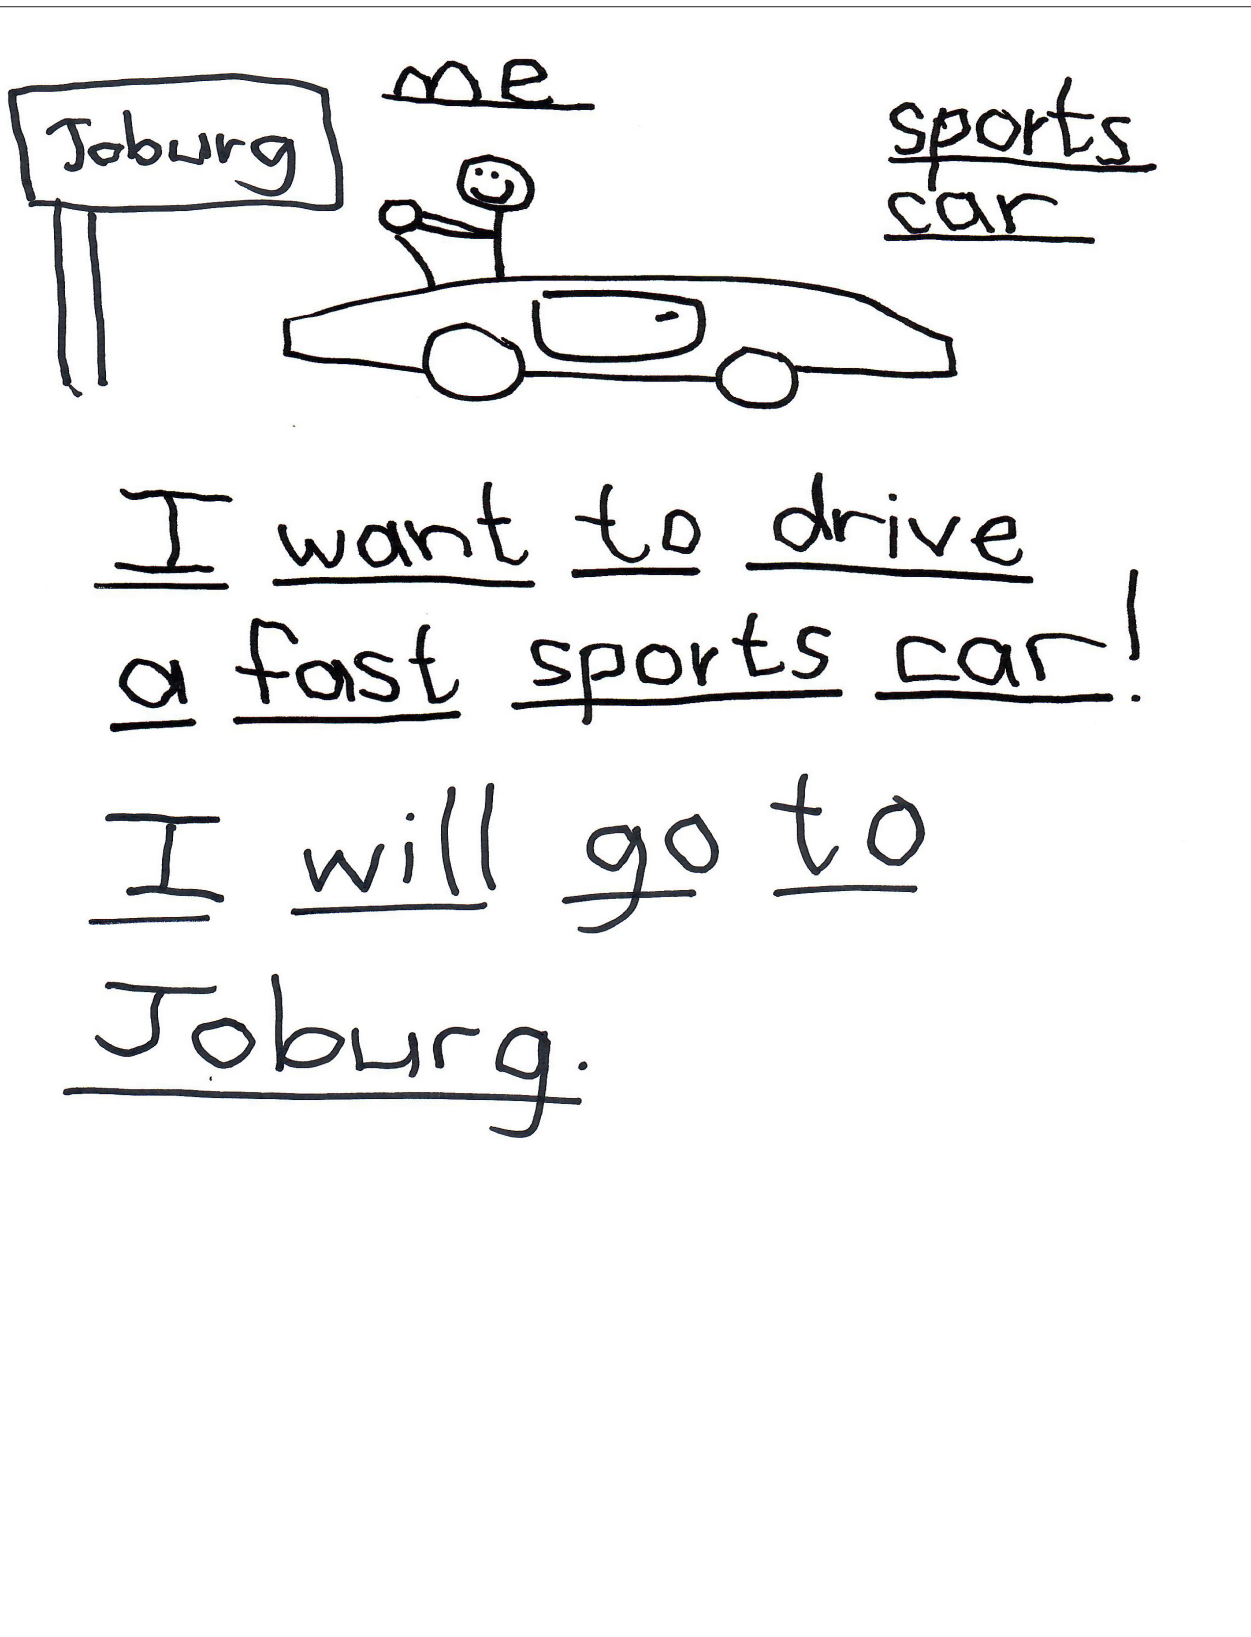 me
Joburg
sports
car
I want to drive
a fast sports car!
I will go to
Joburg.